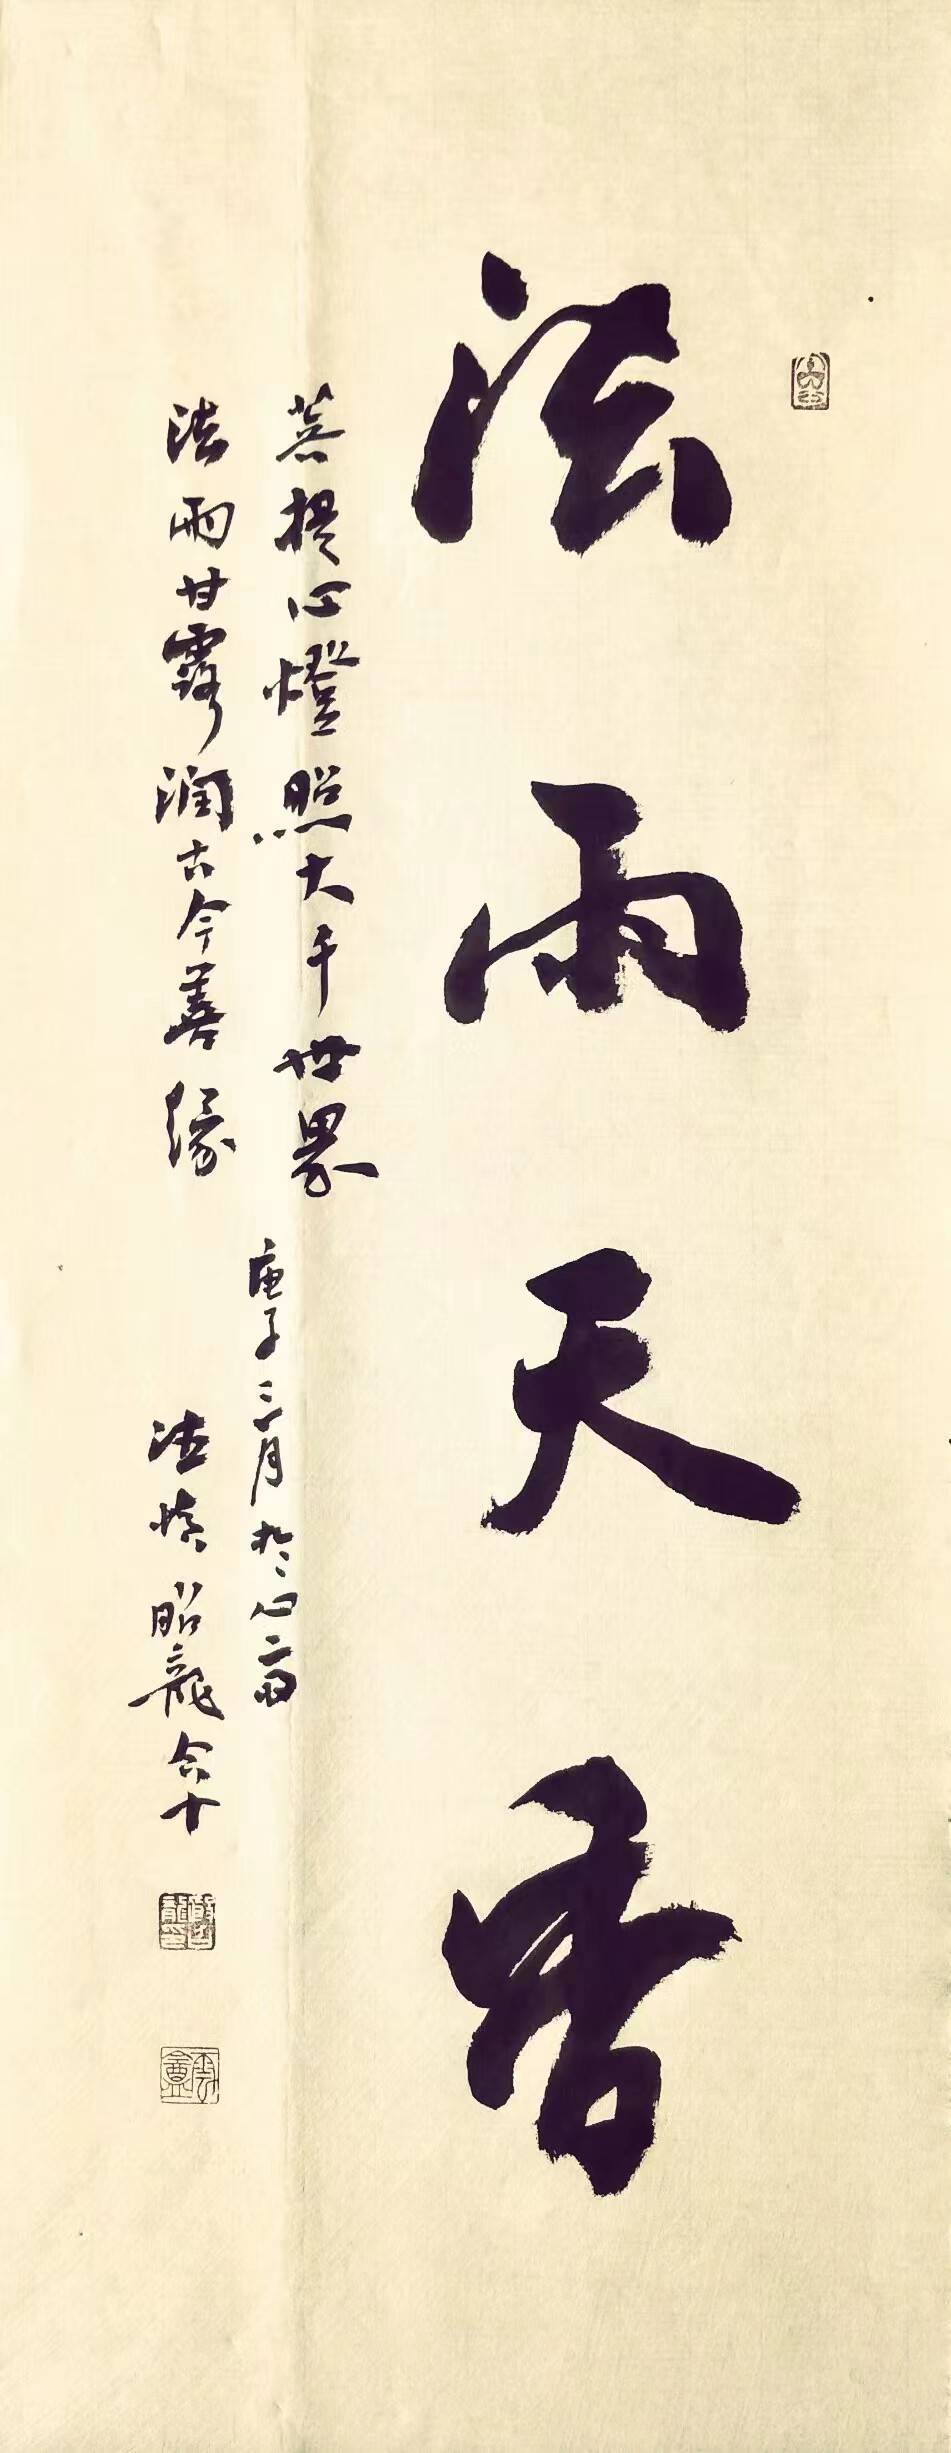 法雨天香
菩提心燈照大千世界
庚子三月於心齋
法雨甘露润古今善缘
法慎昭龍合十